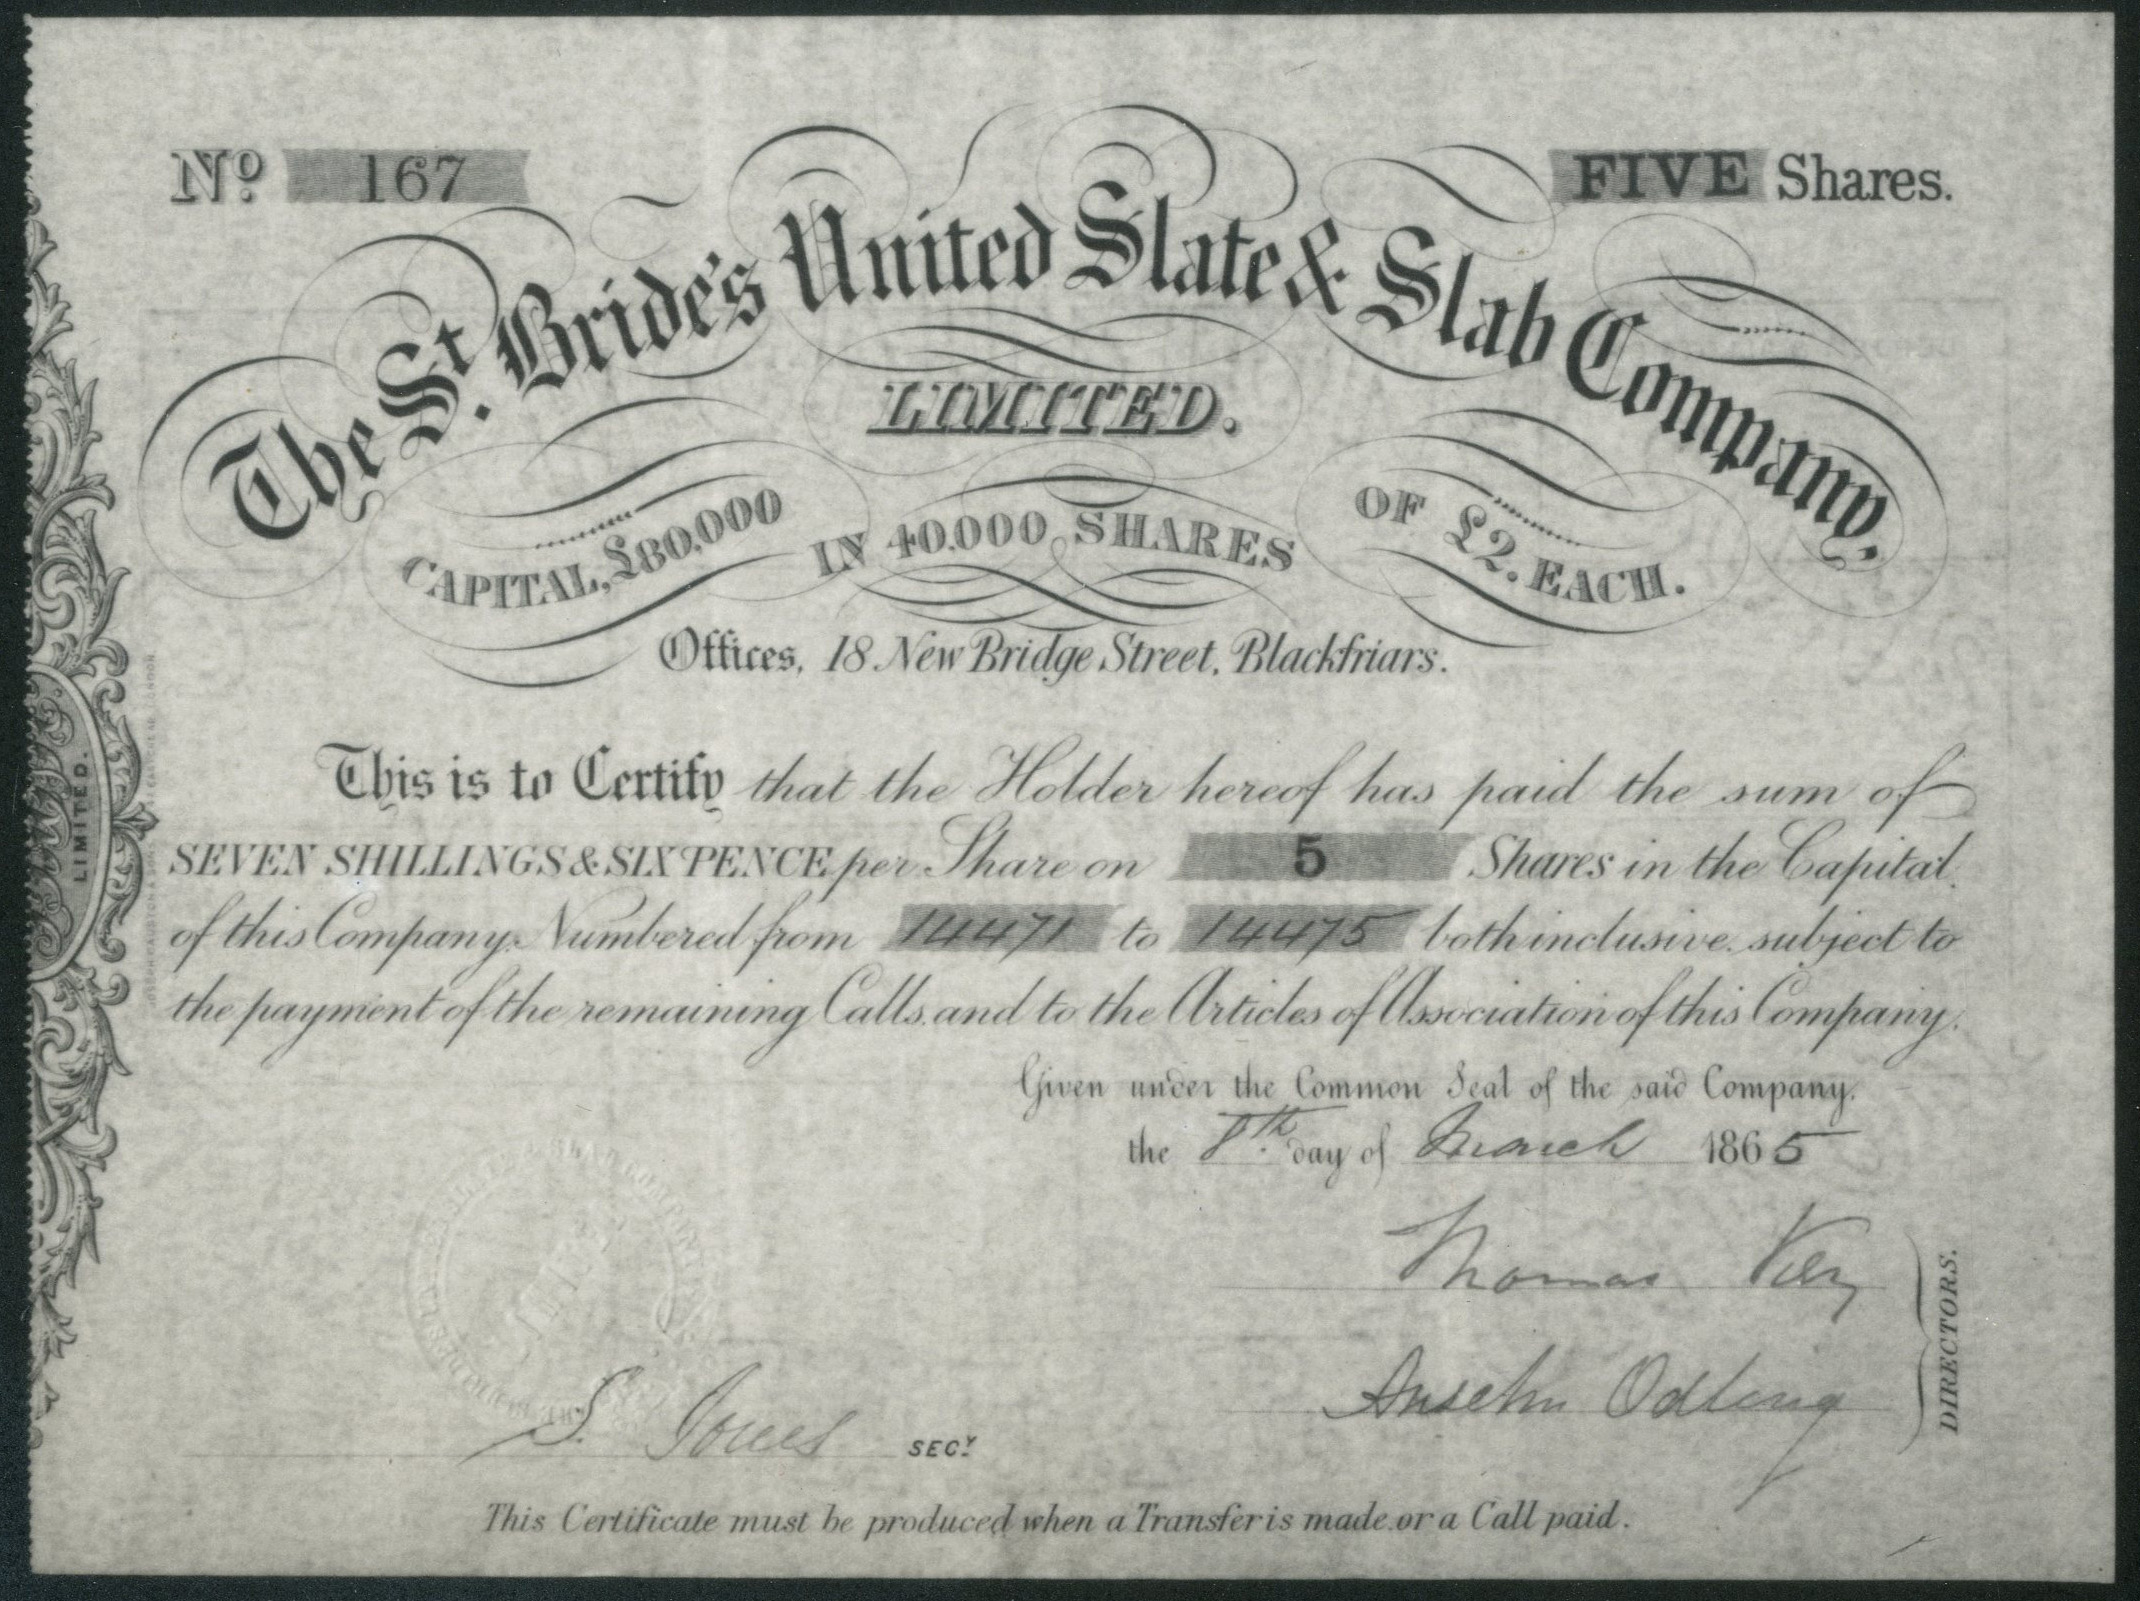 No. 167
FIVE Shares.
The St. Bride's United Slate & Slab Company,
LIMITED.
CAPITAL, £80,000 IN 40,000 SHARES OF £2. EACH.
Offices, 18 New Bridge Street, Blackfriars.
This is to Certify that the Holder hereof has paid the sum of
SEVEN SHILLINGS & SIXPENCE per Share on 5 Shares in the Capital
of this Company, Numbered from 14471 to 14475 both inclusive, subject to
the payment of the remaining Calls, and to the Articles of Association of this Company.
Given under the Common Seal of the said Company,
the 8th day of March 1865
Thomas
Anselm Odling
DIRECTORS.
S. Jones SECY
This Certificate must be produced when a Transfer is made or a Call paid.
LIMITED.